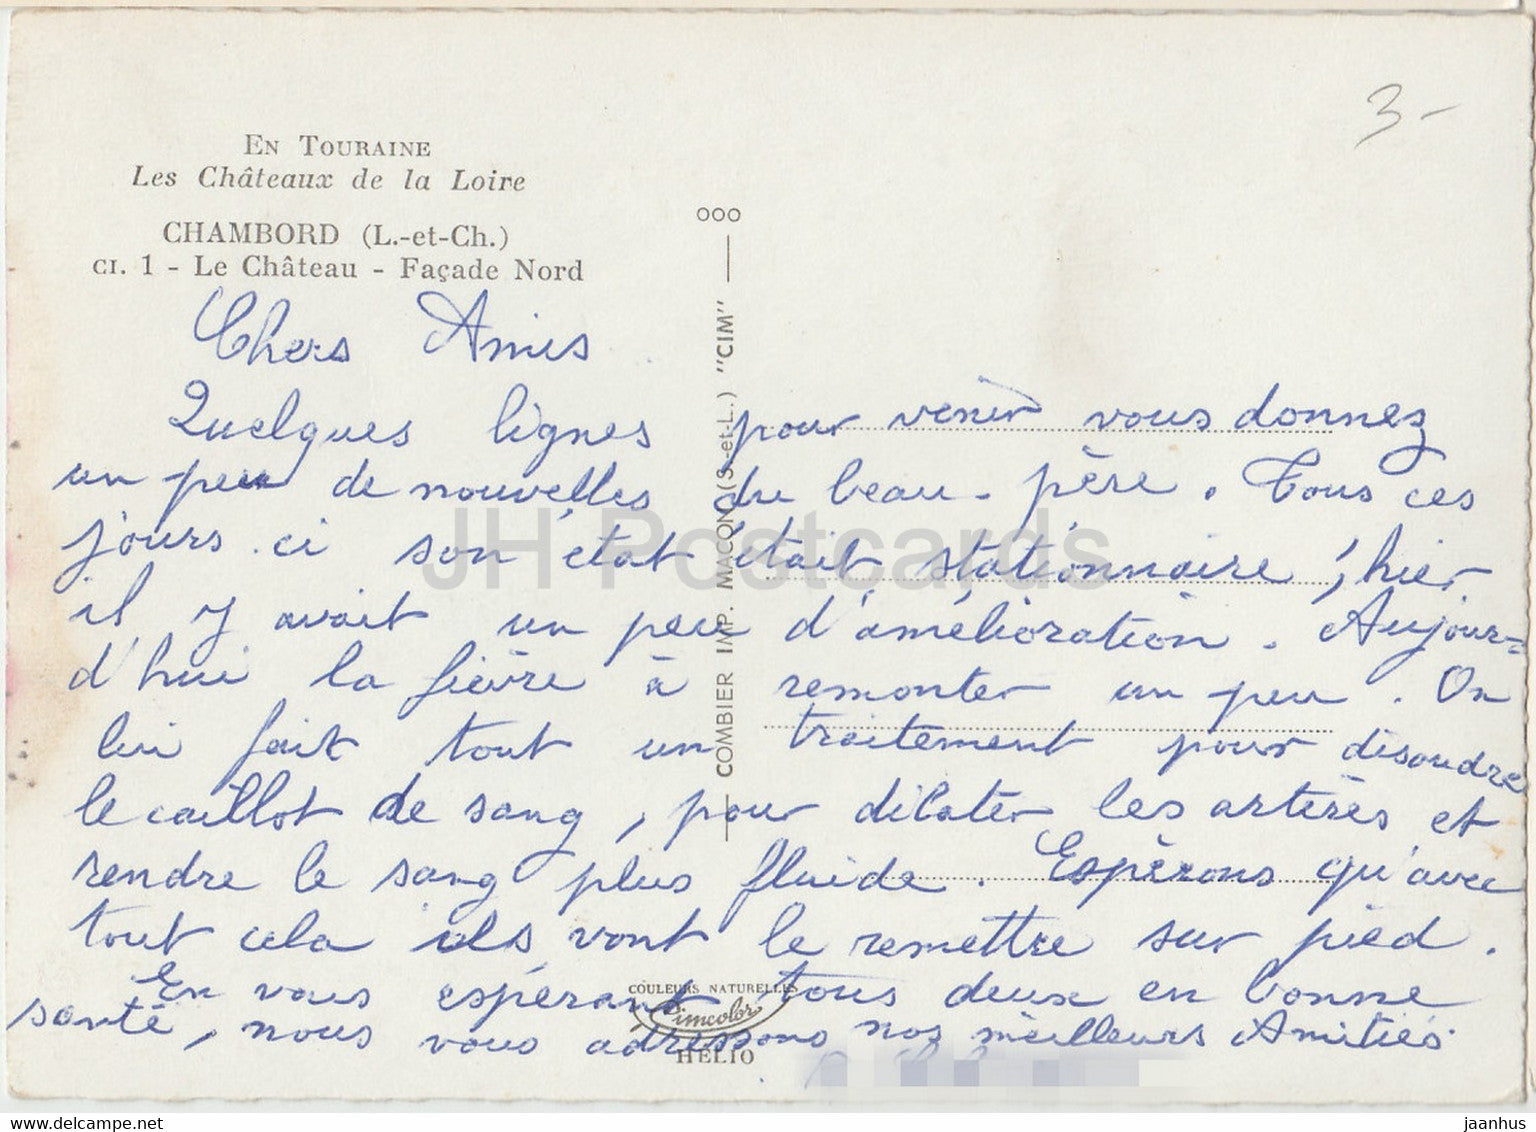 3-
EN TOURAINE
Les Châteaux de la Loire
CHAMBORD (L.-et-Ch.)
CI. 1 - Le Château - Façade Nord
Chers Amis
Quelques lignes pour venir vous donnez
un peu de nouvelles du beau-père. Tous ces
jours-ci son état était stationnaire, hier
il y avait un peu d'amélioration. Aujour=
d'hui la fièvre à remonter un peu. On
lui fait tout un traitement pour disoudre
le caillot de sang, pour dilater les artères et
rendre le sang plus fluide. Espèrons qu'avec
tout cela ils vont le remettre sur pied.
En vous espérant tous deux en bonne
santé, nous vous adressons nos meilleurs Amitiés.
OOO
COMBIER IMP. MACON (S.-et-L.) "CIM"
COULEURS NATURELLES
Cimcolor
HÉLIO
JH Postcards
www.delcampe.net
jaanhus